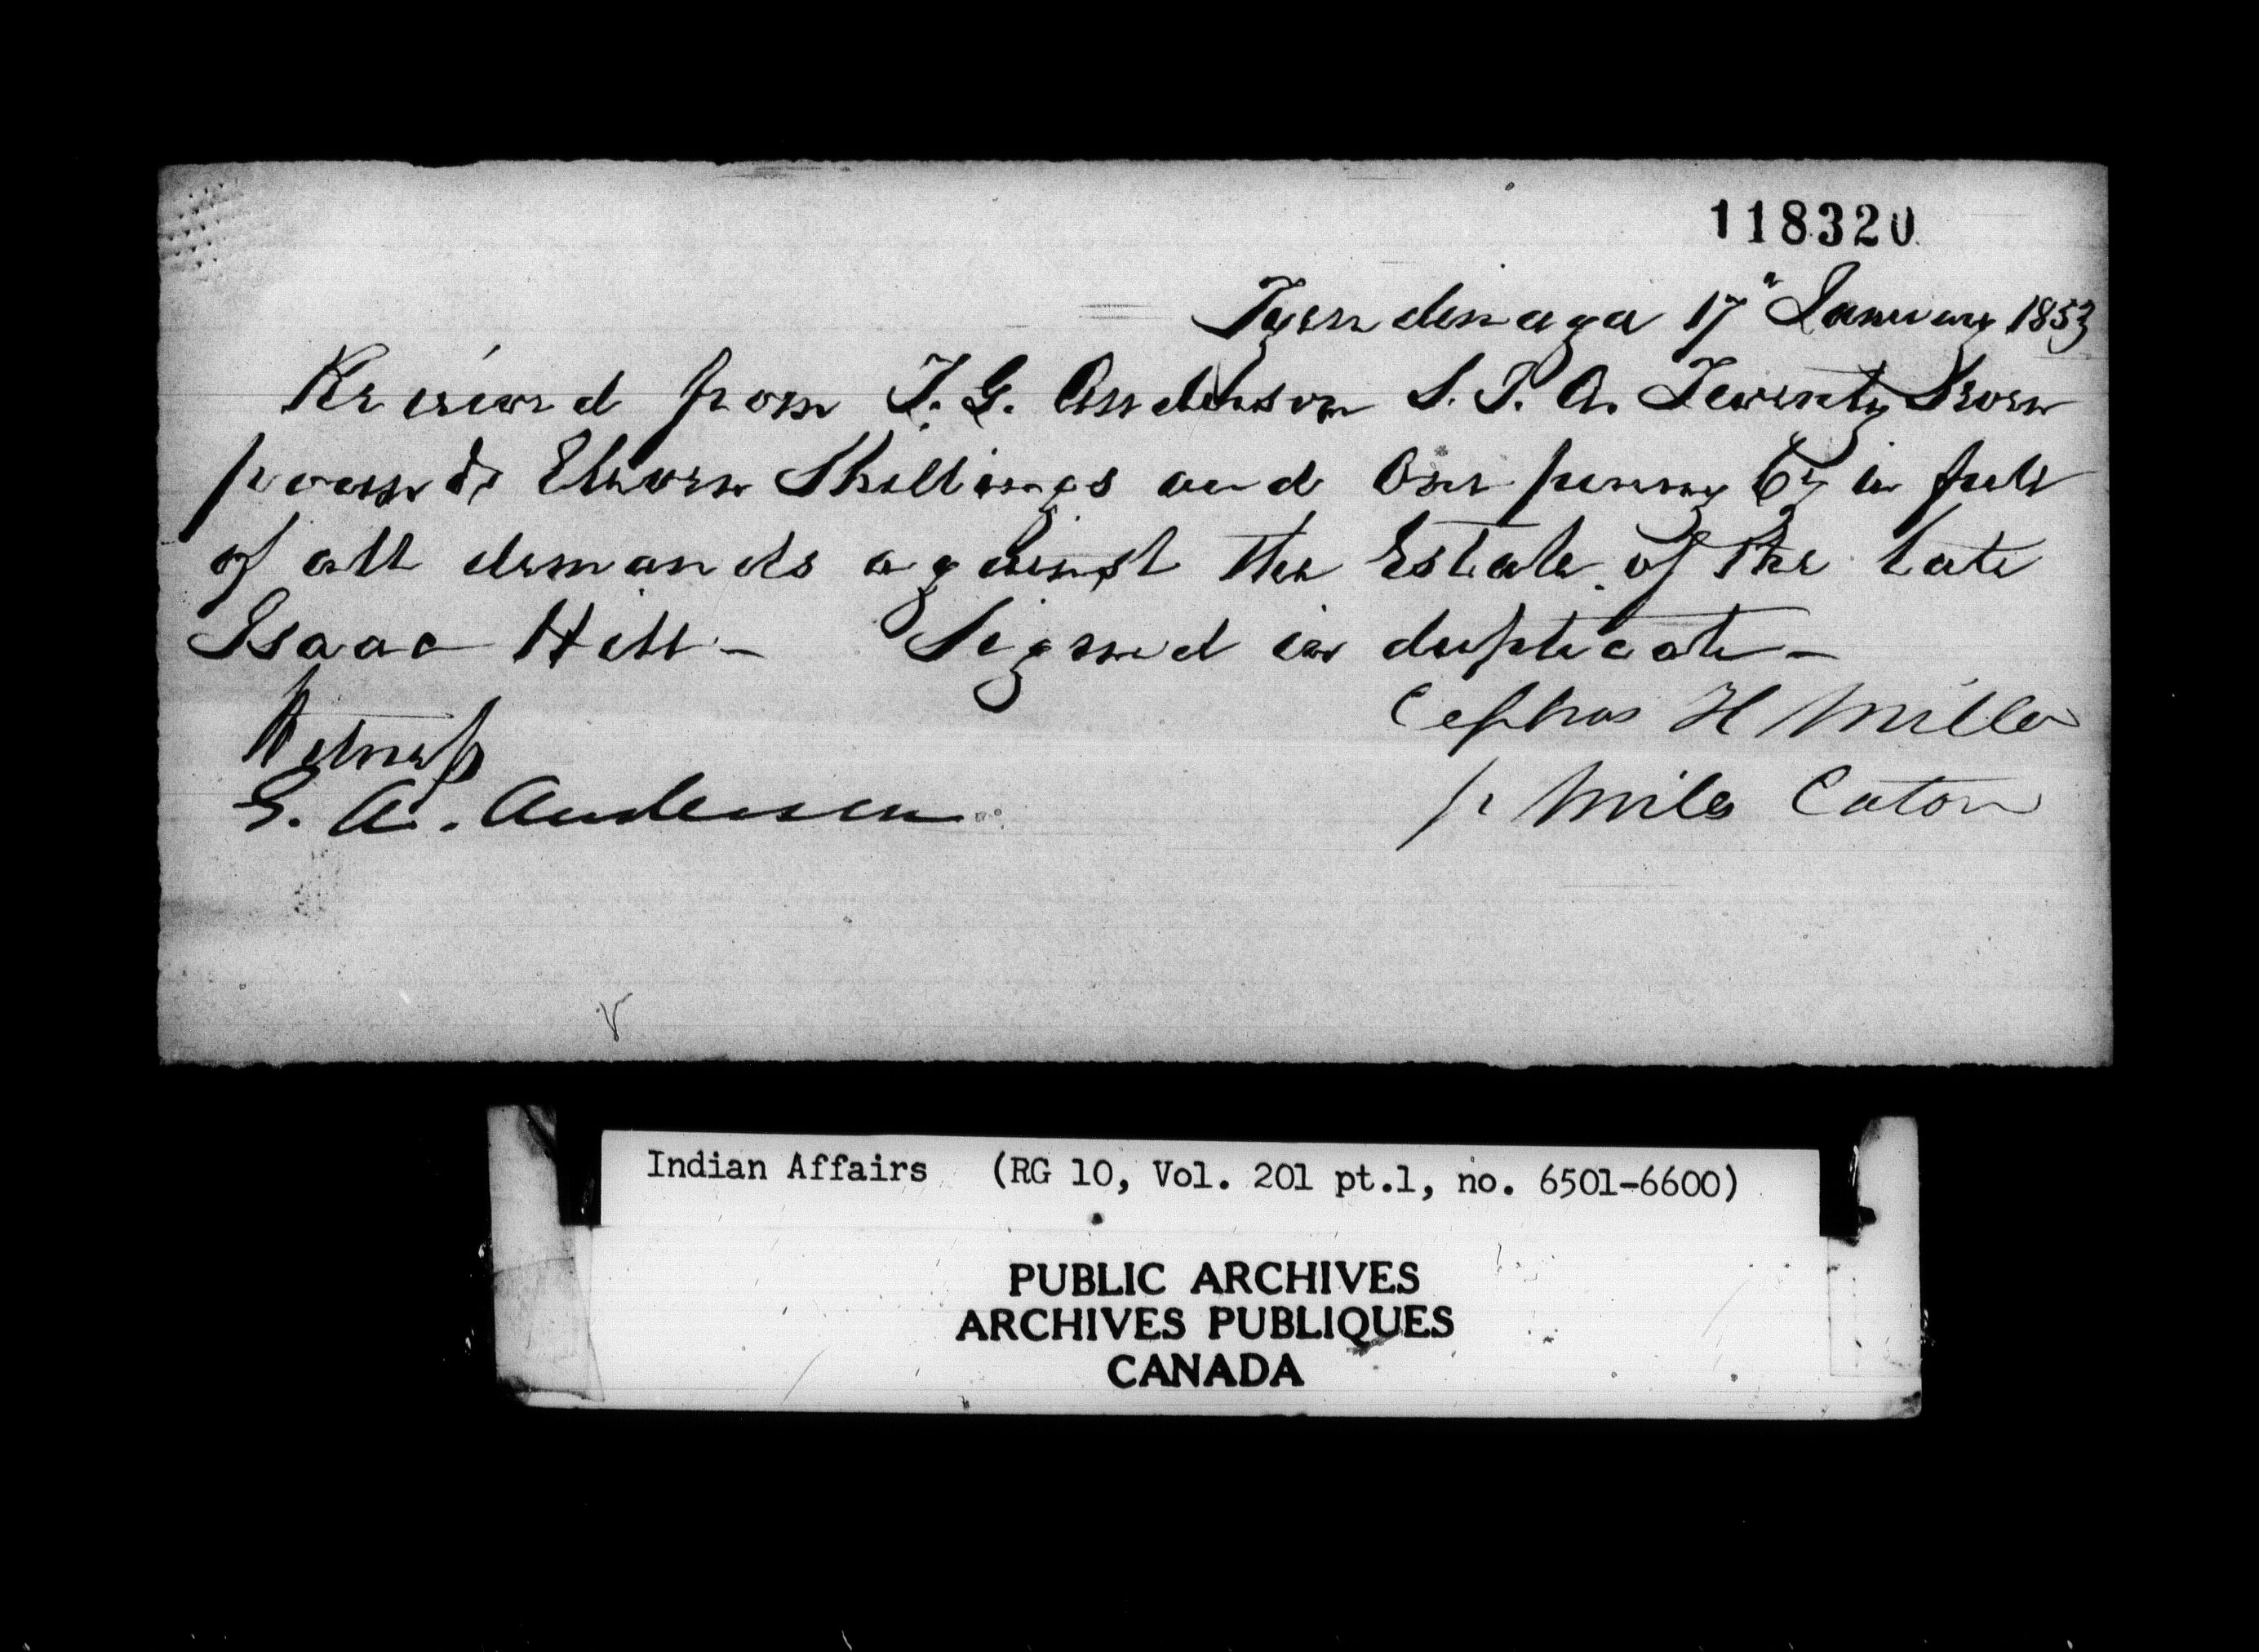 118320
Tyendenaga 17" January 1853
Received from T. G. Anderson S. I. A. Twenty Seven
pounds Eleven Shillings and One penny Cy in full
of all demands against the Estate of the late
Isaac Hill - Signed in duplicate -
Cephas H Miller
Witness
p Miles Caton
G. A. Anderson
Indian Affairs (RG 10, Vol. 201 pt.1, no. 6501-6600)
PUBLIC ARCHIVES
ARCHIVES PUBLIQUES
CANADA